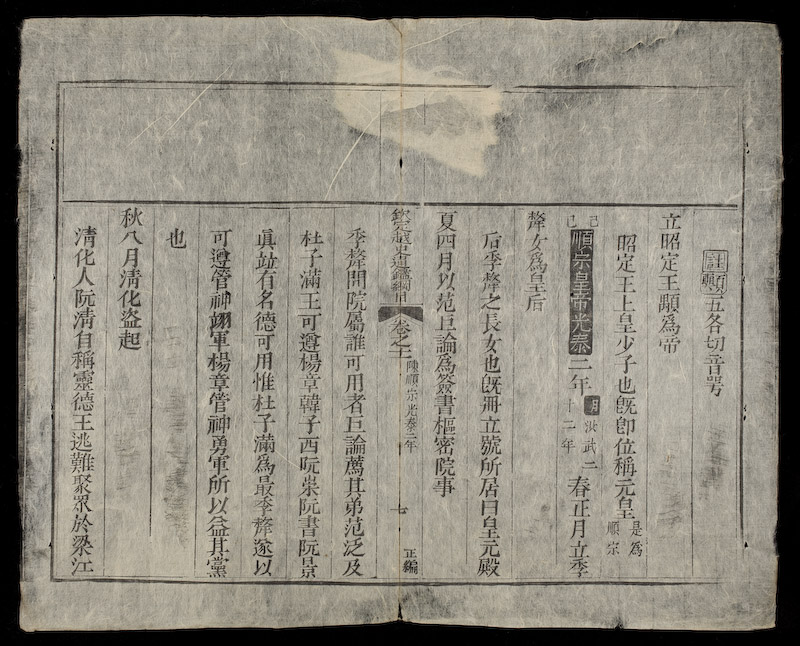 註顒五各切音咢
立昭定王顒爲帝
昭定王上皇少子也旣卽位稱元皇是爲順宗
己巳順宗皇帝光泰二年明洪武二十二年春正月立季
犛女爲皇后
后季犛之長女也旣冊立號所居曰皇元殿
夏四月以范巨論爲簽書樞密院事
欽定越史通鑑綱目 卷之十一 陳順宗光泰二年 七 正編
季犛問院屬誰可用者巨論薦其弟范泛及
杜子滿王可遵楊章韓子西阮崇阮書阮景
眞竝有名德可用惟杜子滿爲最季犛遂以
可遵管神翊軍楊章管神勇軍所以益其黨
也
秋八月淸化盜起
淸化人阮淸自稱靈德王逃難聚眾於梁江